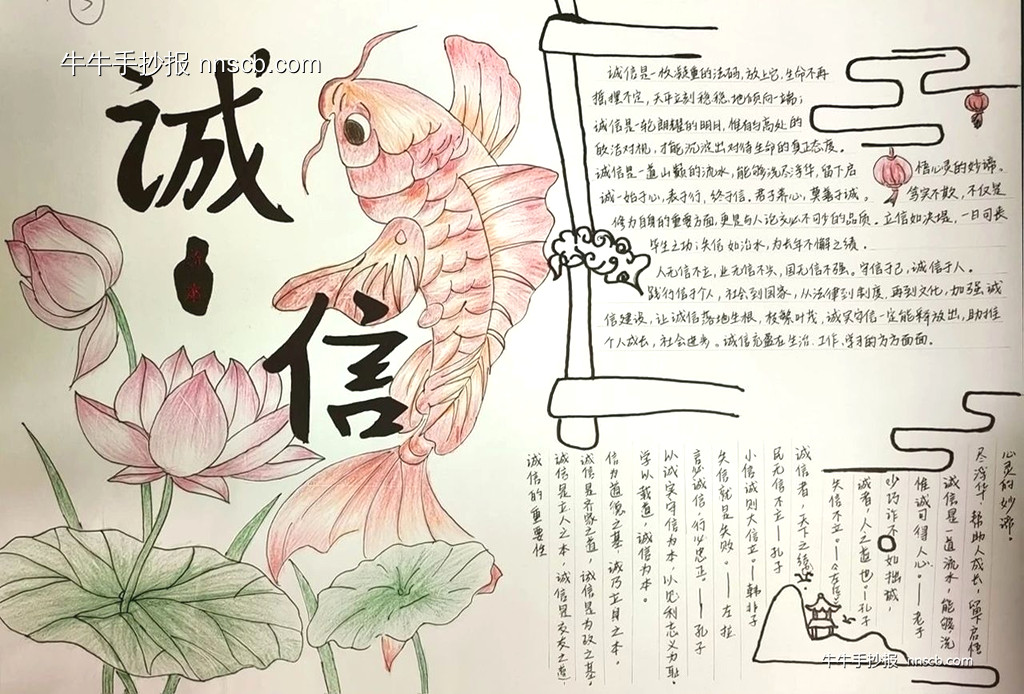 牛牛手抄报 nnscb.com
诚
信
诚信是一枚凝重的法码，放上它，生命不再
摇摆不定，天平立刻稳稳地倾向一端；
诚信是一轮朗耀的明月，惟有与高处的
皎洁对视，才能沉淀出对待生命的真正态度。
诚信是一道山巅的流水，能够洗尽浮华，留下启
悟心灵的妙谛。
诚-始于心，表于行，终于信。君子养心，莫善于诚。
笃实不欺，不仅是
修为自身的重要方面，更是与人论交必不可少的品质。立信如决堤，一日可长
毕生之功；失信如治水，为长年不懈之绩。
人无信不立，业无信不兴，国无信不强。守信于己，诚信于人。
践行信于个人，社会到国家，从法律到制度，再到文化，加强诚
信建设，让诚信落地生根，枝繁叶茂，诚实守信一定能释放出，助推
个人成长，社会进步。诚信充盈在生活、工作、学习的方方面面。
心灵的妙谛！
尽浮华，帮助人成长，留下启悟
诚信是一道流水，能够洗
惟诚可得人心。——老子
巧诈不如拙诚，
诚者，人之道也—孔子
失信不立。—
诚信者，天下之结
民无信不立——孔子
小信诚则大信立。—韩非子
失信就是失败。——左拉
言必诚信，行必忠正。——孔子
以诚实守信为本，以见利忘义为耻。
学以载道，诚信为本。
信为道德之基，诚乃立身之本，
诚信是齐家之道，诚信是为政之基。
诚信是立人之本，诚信是交友之道，
诚信的重要性
牛牛手抄报 nnscb.com